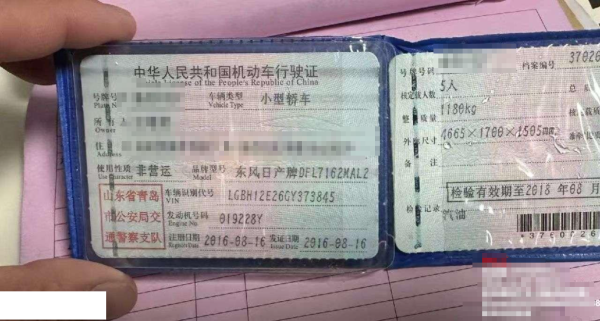 中华人民共和国机动车行驶证
Vehicle License of the People's Republic of China
号牌号码
Plate No.
车辆类型 小型轿车
Vehicle Type
所 人
Owner
住
Address
使用性质 非营运 品牌型号 东风日产牌DFL7162MAL2
Use Character Model
山东省青岛
市公安局交
通警察支队
车辆识别代号 LGBH12E26GY373845
VIN
发动机号码 019228Y
Engine No.
注册日期 2016-08-16 发证日期 2016-08-16
Register Date Issue Date
号牌号码 档案编号 37026
核定载人数 5人
整 质量 1180kg
外廓尺寸 4665×1700×1505
检验有效期至2018 年08月
检验记录
汽油